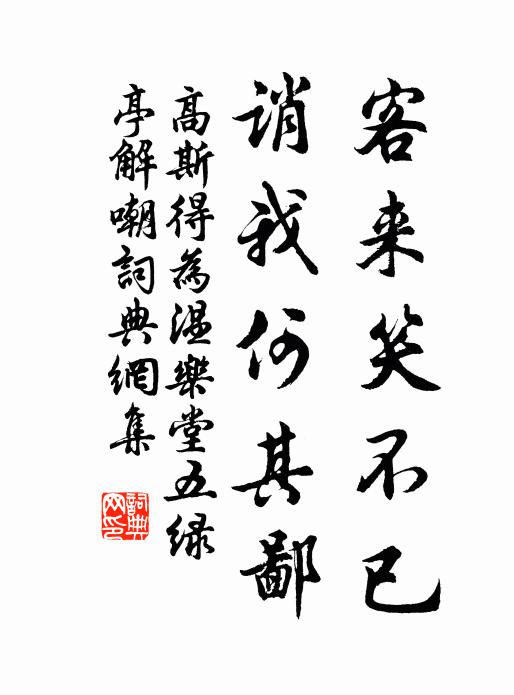 客来笑不已
诮我何其鄙
高斯得為湿樂堂五绿
亭解嘲詞典網集
詞典網印